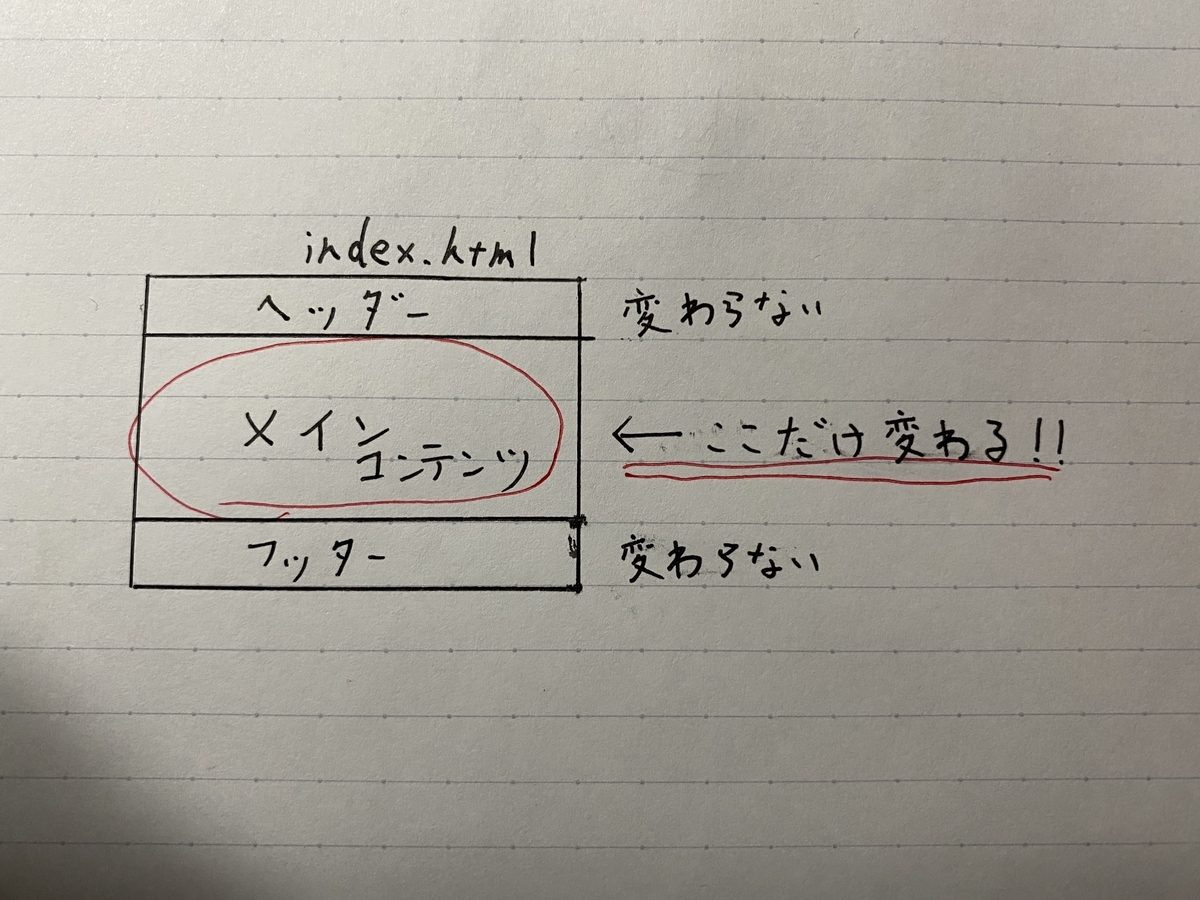 index.html
ヘッダー 変わらない
メイン
コンテンツ ←ここだけ変わる!!
フッター 変わらない